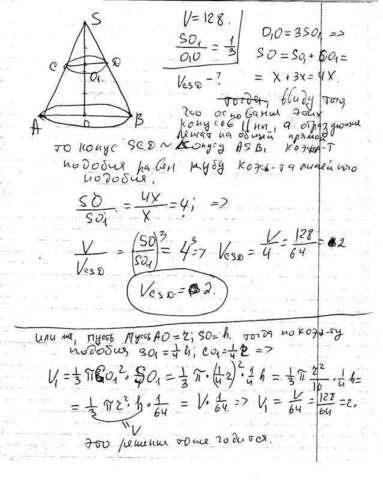 S
C D
O₁
A O B
V = 128.
SO₁/O₁O = 1/3
V_CSD - ?
O₁O = 3SO₁ =>
SO = SO₁ + OO₁ =
= x + 3x = 4x.
ввиду того,
что основания этих
конусов ||ны, а образующие
лежат на общей прямой
то конус SCD ~ конусу ASB, коэф-т
подобия равен кубу коэф-та линейного
подобия.
SO/SO₁ = 4x/x = 4; =>
V/V_CSD = (SO/SO₁)³ = 4³ => V_CSD = V/4 = 128/64 = 2
V_CSD = 2.
или же, пусть AO = r; SO = h. тогда по коэф-ту
подобия SO₁ = 1/4 h; CO₁ = 1/4 r =>
V₁ = 1/3 π CO₁² · SO₁ = 1/3 π · (1/4 r)² · 1/4 h = 1/3 π r²/16 · 1/4 h =
= 1/3 π r² · h · 1/64 = V · 1/64 => V₁ = V/64 = 128/64 = 2.
= V
это решение тоже годится.